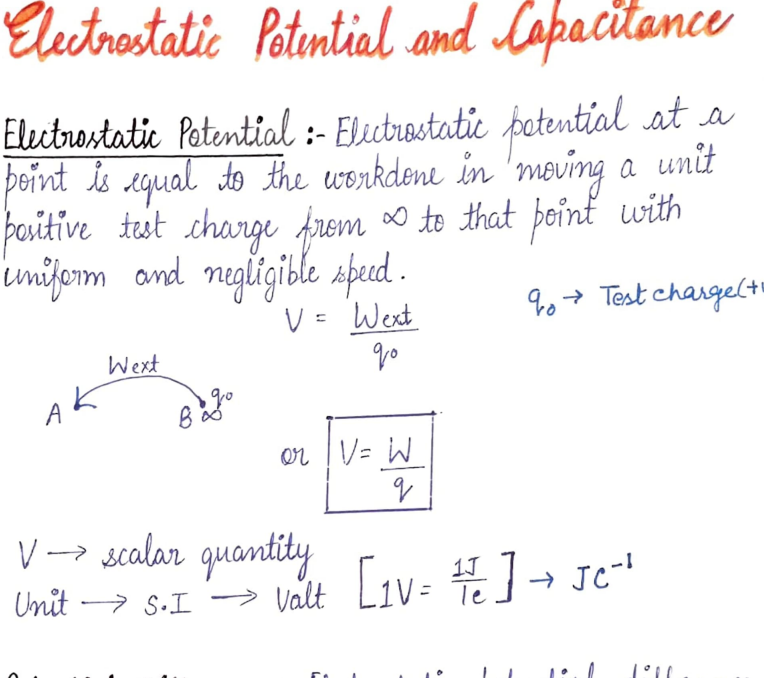 Electrostatic Potential and Capacitance
Electrostatic Potential :- Electrostatic potential at a
point is equal to the workdone in moving a unit
positive test charge from ∞ to that point with
uniform and negligible speed.
V = Wext/q₀
q₀ → Test charge(+
Wext
A B ∞ q₀
or V = W/q
V → scalar quantity
Unit → S.I → Valt [1V = 1J/1c] → JC⁻¹